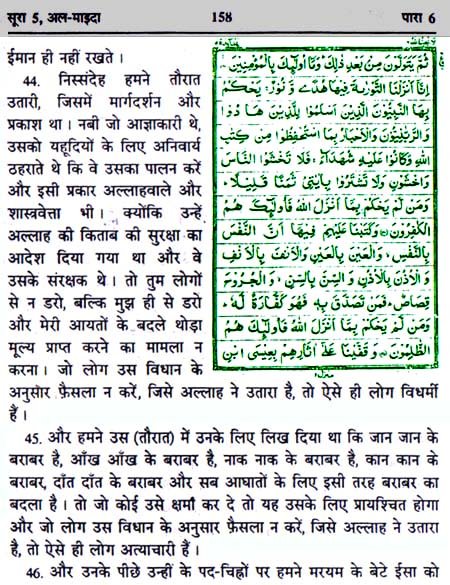 सूरा 5, अल-माइदा 158 पारा 6
ईमान ही नहीं रखते ।
44. निस्संदेह हमने तौरात
उतारी, जिसमें मार्गदर्शन और
प्रकाश था । नबी जो आज्ञाकारी थे,
उसको यहूदियों के लिए अनिवार्य
ठहराते थे कि वे उसका पालन करें
और इसी प्रकार अल्लाहवाले और
शास्त्रवेत्ता भी । क्योंकि उन्हें
अल्लाह की किताब की सुरक्षा का
आदेश दिया गया था और वे
उसके संरक्षक थे । तो तुम लोगों
से न डरो, बल्कि मुझ ही से डरो
और मेरी आयतों के बदले थोड़ा
मूल्य प्राप्त करने का मामला न
करना । जो लोग उस विधान के
ثُمَّ يَتَوَلَّوْنَ مِنْ بَعْدِ ذٰلِكَ وَمَآ اُولٰٓئِكَ بِالْمُؤْمِنِيْنَ
اِنَّآ اَنْزَلْنَا التَّوْرٰىةَ فِيْهَا هُدًى وَّ نُوْرٌ يَحْكُمُ
بِهَا النَّبِيُّوْنَ الَّذِيْنَ اَسْلَمُوْا لِلَّذِيْنَ هَادُوْا
وَ الرَّبّٰنِيُّوْنَ وَالْاَحْبَارُ بِمَا اسْتُحْفِظُوْا مِنْ كِتٰبِ
اللّٰهِ وَكَانُوْا عَلَيْهِ شُهَدَآءَ فَلَا تَخْشَوُا النَّاسَ
وَاخْشَوْنِ وَلَا تَشْتَرُوْا بِاٰيٰتِيْ ثَمَنًا قَلِيْلًا
وَمَنْ لَّمْ يَحْكُمْ بِمَآ اَنْزَلَ اللّٰهُ فَاُولٰٓئِكَ هُمُ
الْكٰفِرُوْنَ وَكَتَبْنَا عَلَيْهِمْ فِيْهَآ اَنَّ النَّفْسَ
بِالنَّفْسِ وَالْعَيْنَ بِالْعَيْنِ وَالْاَنْفَ بِالْاَنْفِ
وَ الْاُذُنَ بِالْاُذُنِ وَ السِّنَّ بِالسِّنِّ وَ الْجُرُوْحَ
قِصَاصٌ فَمَنْ تَصَدَّقَ بِهٖ فَهُوَ كَفَّارَةٌ لَّهٗ
وَمَنْ لَّمْ يَحْكُمْ بِمَآ اَنْزَلَ اللّٰهُ فَاُولٰٓئِكَ هُمُ
الظّٰلِمُوْنَ وَ قَفَّيْنَا عَلٰٓى اٰثَارِهِمْ بِعِيْسَى ابْنِ
अनुसार फ़ैसला न करें, जिसे अल्लाह ने उतारा है, तो ऐसे ही लोग विधर्मी
हैं ।
45. और हमने उस (तौरात) में उनके लिए लिख दिया था कि जान जान के
बराबर है, आँख आँख के बराबर है, नाक नाक के बराबर है, कान कान के
बराबर, दाँत दाँत के बराबर और सब आघातों के लिए इसी तरह बराबर का
बदला है । तो जो कोई उसे क्षमा कर दे तो यह उसके लिए प्रायश्चित होगा
और जो लोग उस विधान के अनुसार फ़ैसला न करें, जिसे अल्लाह ने उतारा
है, तो ऐसे ही लोग अत्याचारी हैं ।
46. और उनके पीछे उन्हीं के पद-चिह्नों पर हमने मरयम के बेटे ईसा को